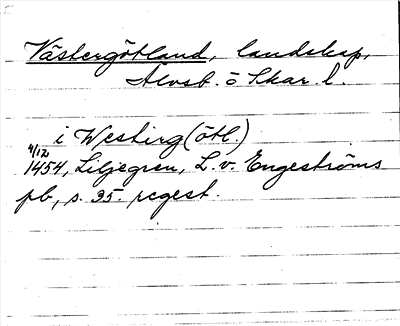 Västergötland, landskap,
Älvsb. o Skar. l.
i Westirg (ötl.)
4/12
1454, Liljegren, L. v. Engeströms
pb, s. 35. regest.